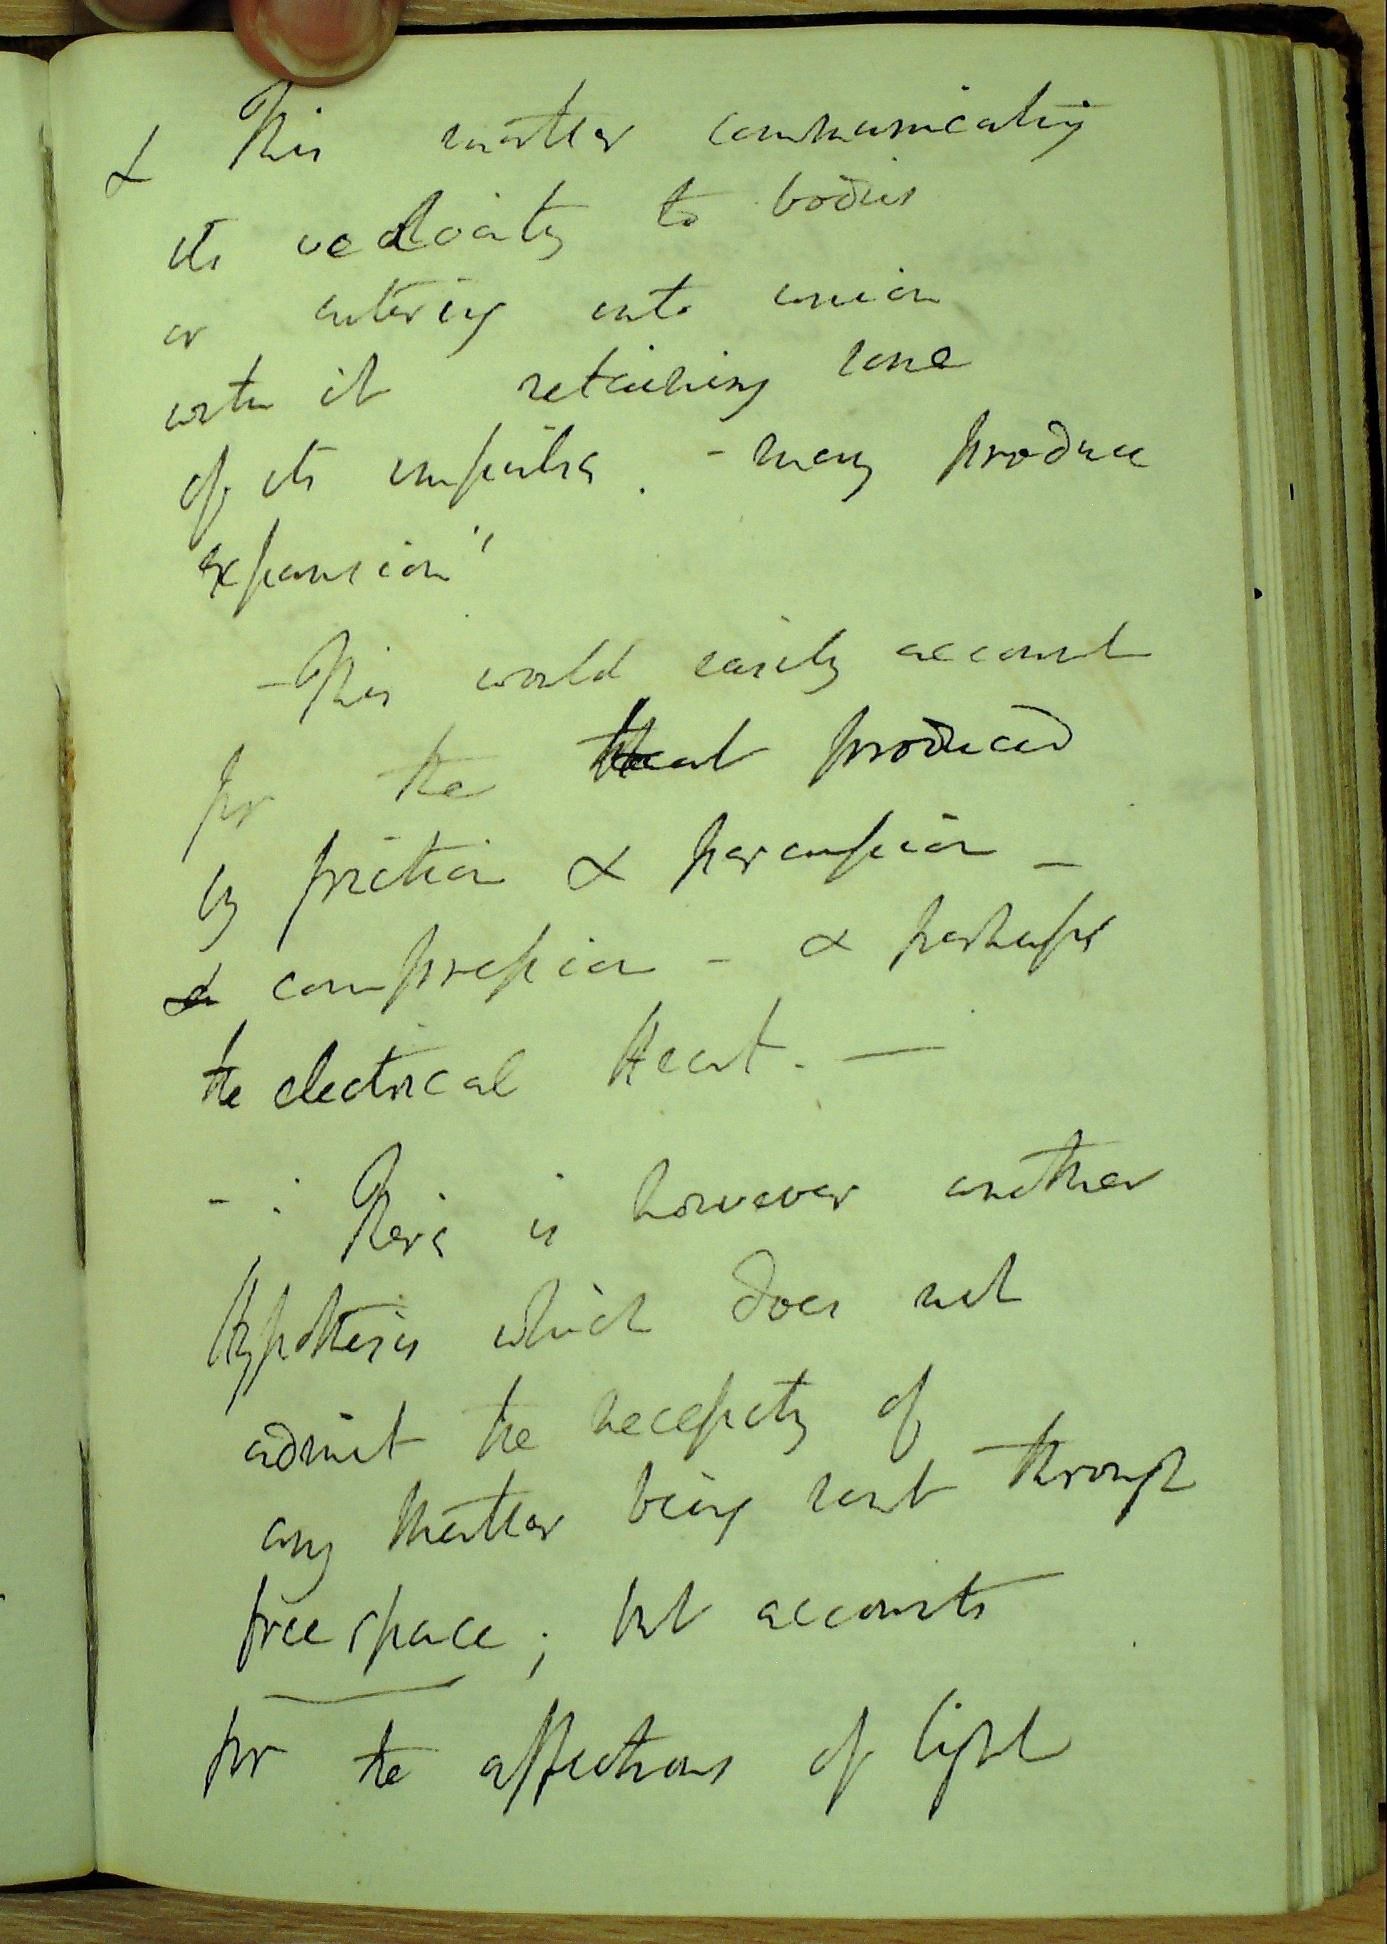 & This matter communicating
its velocity to bodies
or entering into union
with it retaining some
of its impulse. - may produce
expansion"
- This would easily account
for the Heat produced
by friction & percussion -
& compression - & perhaps
the electrical Heat. -
- : There is however another
Hypothesis which does not
admit the necessity of
any matter being sent through
free space; but accounts
for the affections of light